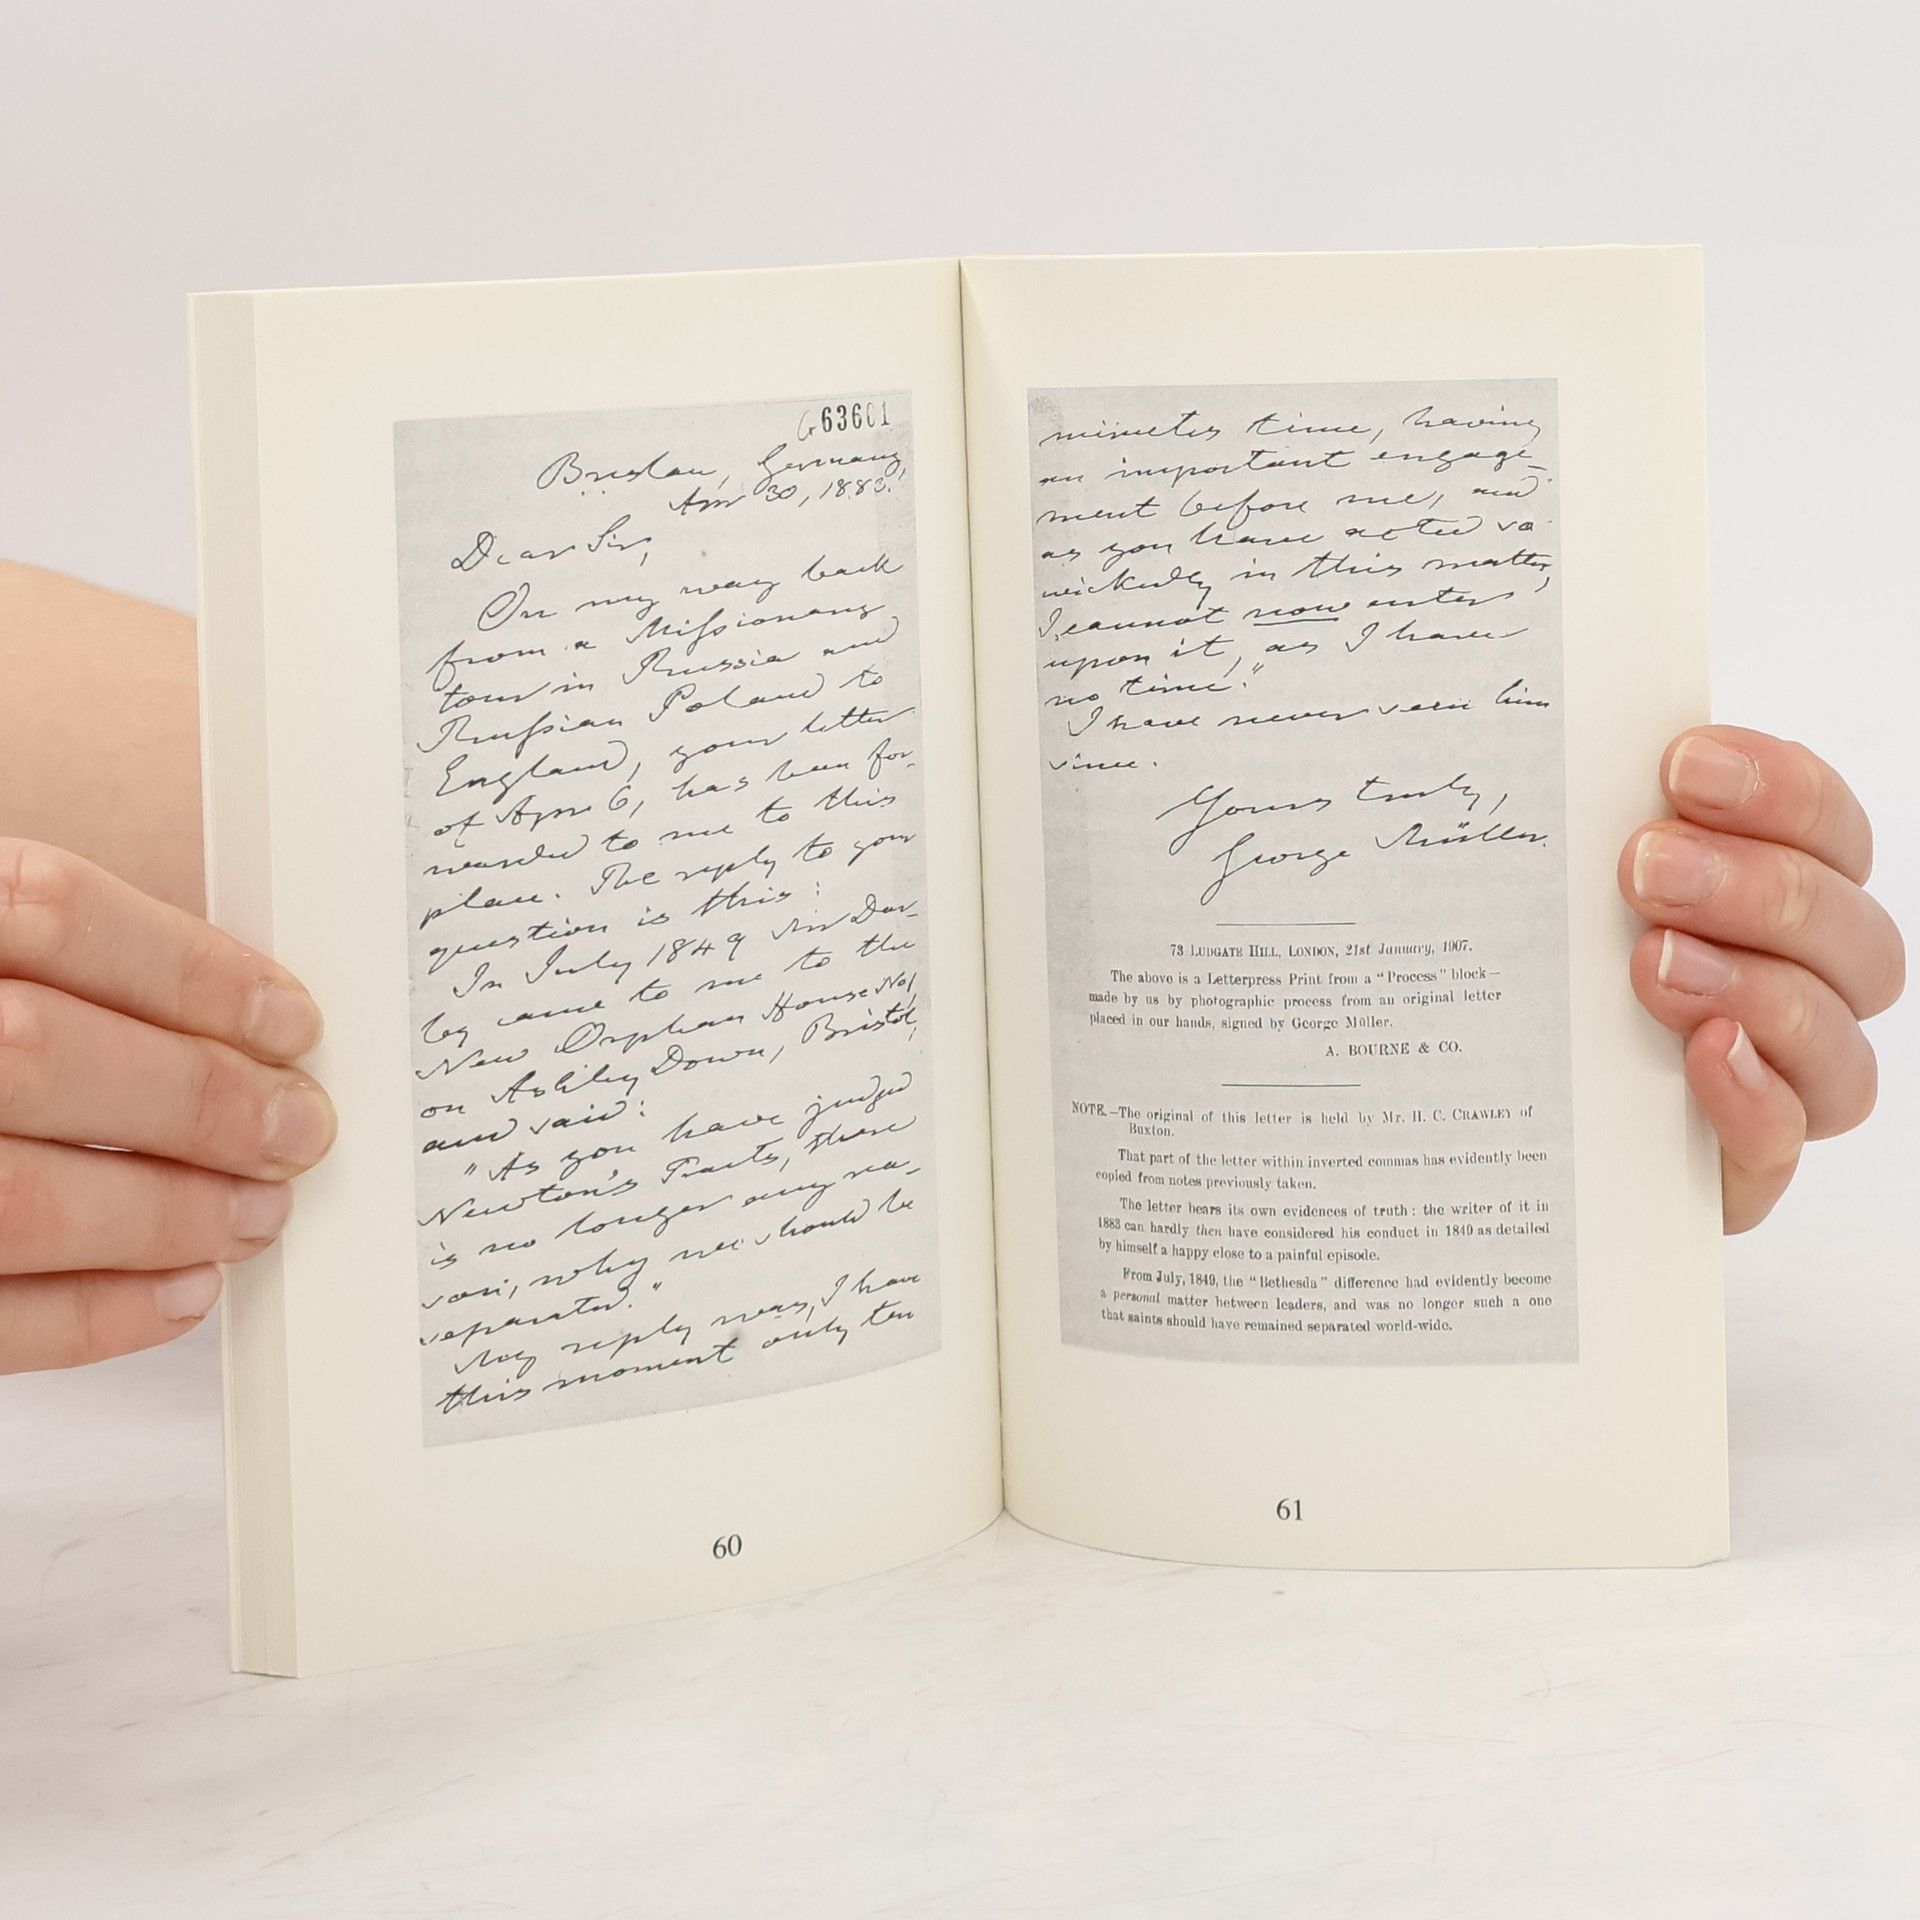 G63601
Breslau, Germany,
Apr 30, 1883.
Dear Sir,
On my way back
from a Missionary
tour in Russia and
Russian Poland to
England, your letter
of Apr 6, has been for-
warded to me to this
place. The reply to your
question is this:
In July 1849 Mr Dar-
by came to me to the
New Orphan House No 1
on Ashley Down, Bristol,
and said:
"As you have judged
Newton's Tracts, there
is no longer any rea-
son, why we should be
separated."
My reply was, I have
this moment only ten
60
minutes time, having
an important engage-
ment before me, and
as you have acted so
wickedly in this matter,
I cannot now enter
upon it, as I have
no time."
I have never seen him
since.
Yours truly,
George Müller.
73 LUDGATE HILL, LONDON, 21st January, 1907.
The above is a Letterpress Print from a "Process" block—
made by us by photographic process from an original letter
placed in our hands, signed by George Müller.
A. BOURNE & CO.
NOTE.—The original of this letter is held by Mr. H. C. CRAWLEY of
Buxton.
That part of the letter within inverted commas has evidently been
copied from notes previously taken.
The letter bears its own evidences of truth: the writer of it in
1883 can hardly then have considered his conduct in 1849 as detailed
by himself a happy close to a painful episode.
From July, 1849, the "Bethesda" difference had evidently become
a personal matter between leaders, and was no longer such a one
that saints should have remained separated world-wide.
61